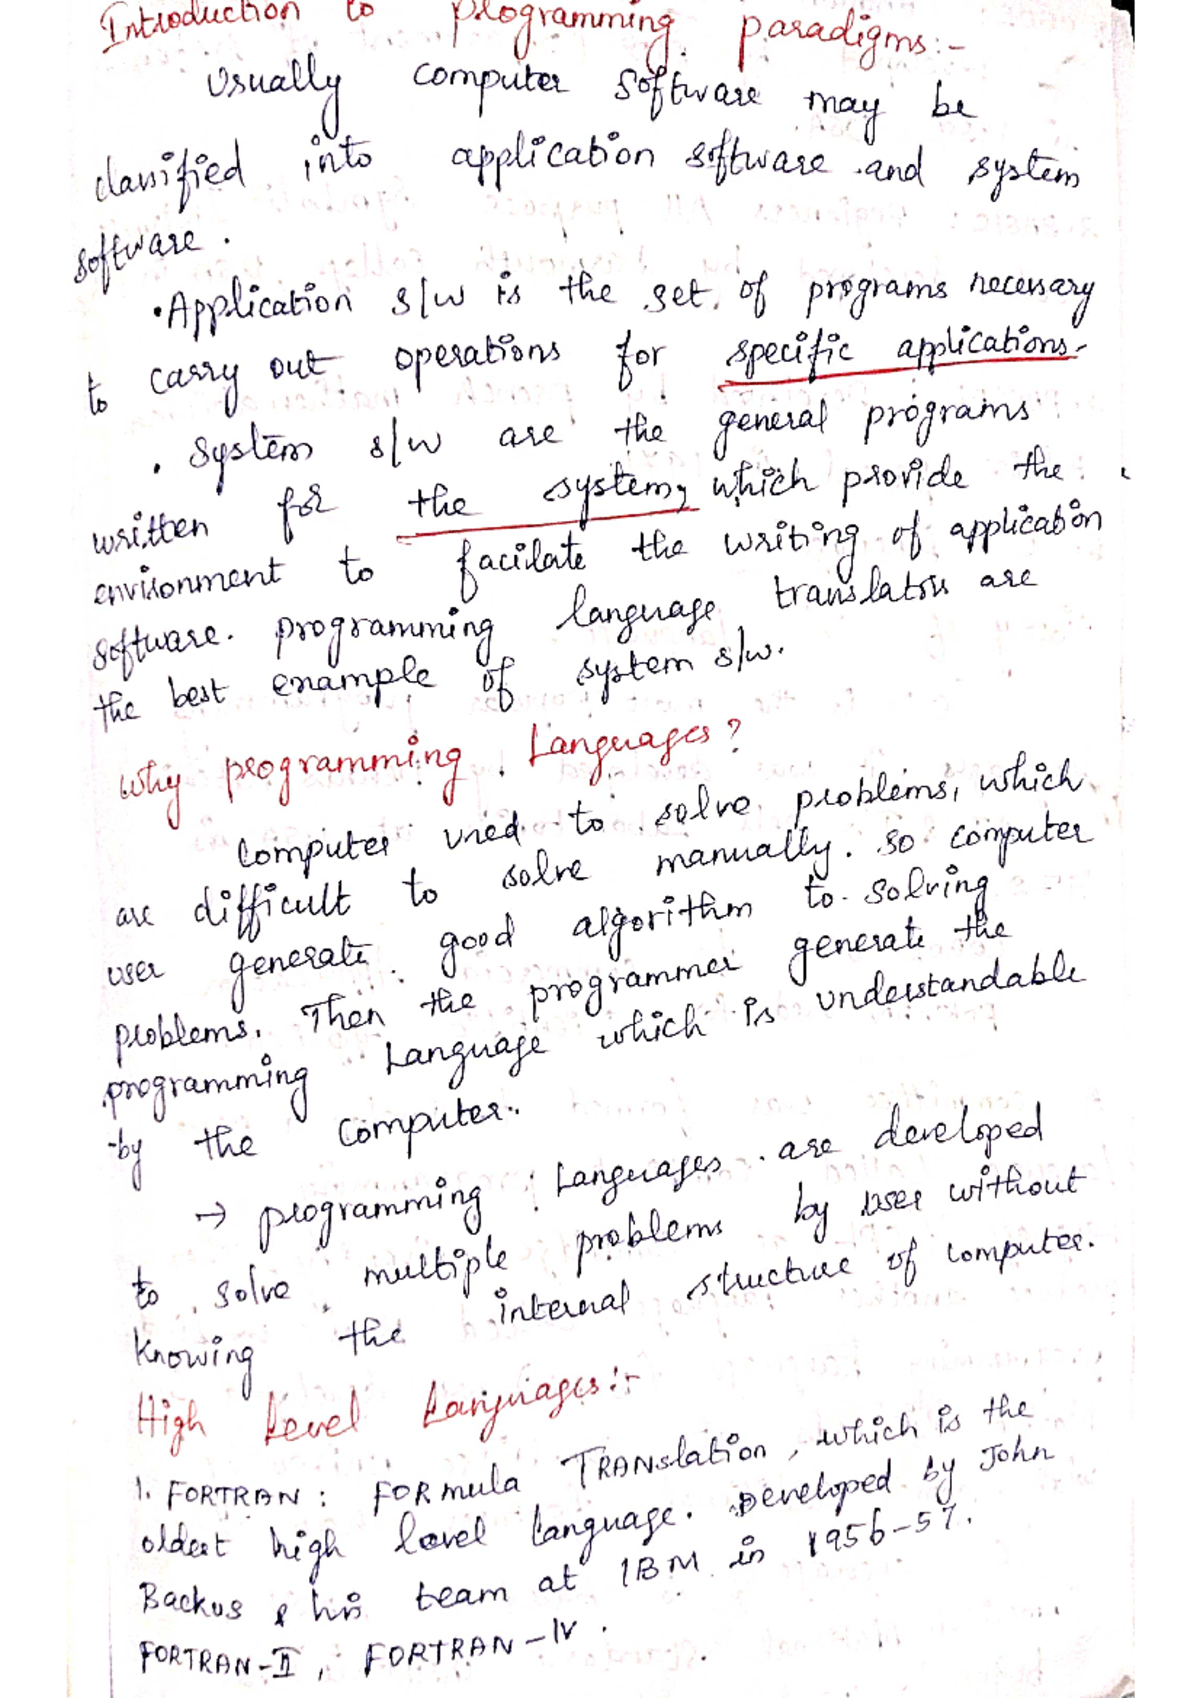 Introduction to programming paradigms:-
Usually computer software may be
classified into application software and system
software.
•Application s/w is the set of programs necessary
to carry out operations for specific applications.
• System s/w are the general programs
written for the system, which provide the
environment to facilate the writing of application
software. programming language translators are
the best example of system s/w.
Why programming Languages?
Computer used to solve problems, which
are difficult to solve manually. So computer
user generate good algorithm to solving
problems. Then the programmer generate the
programming Language which is understandable
by the Computer.
→ programming Languages are developed
to solve multiple problems by user without
knowing the internal structure of computer.
High Level Languages:-
1. FORTRAN : FORmula TRANslation, which is the
oldest high level language. Developed by John
Backus & his team at IBM in 1956-57.
FORTRAN-II, FORTRAN-IV.